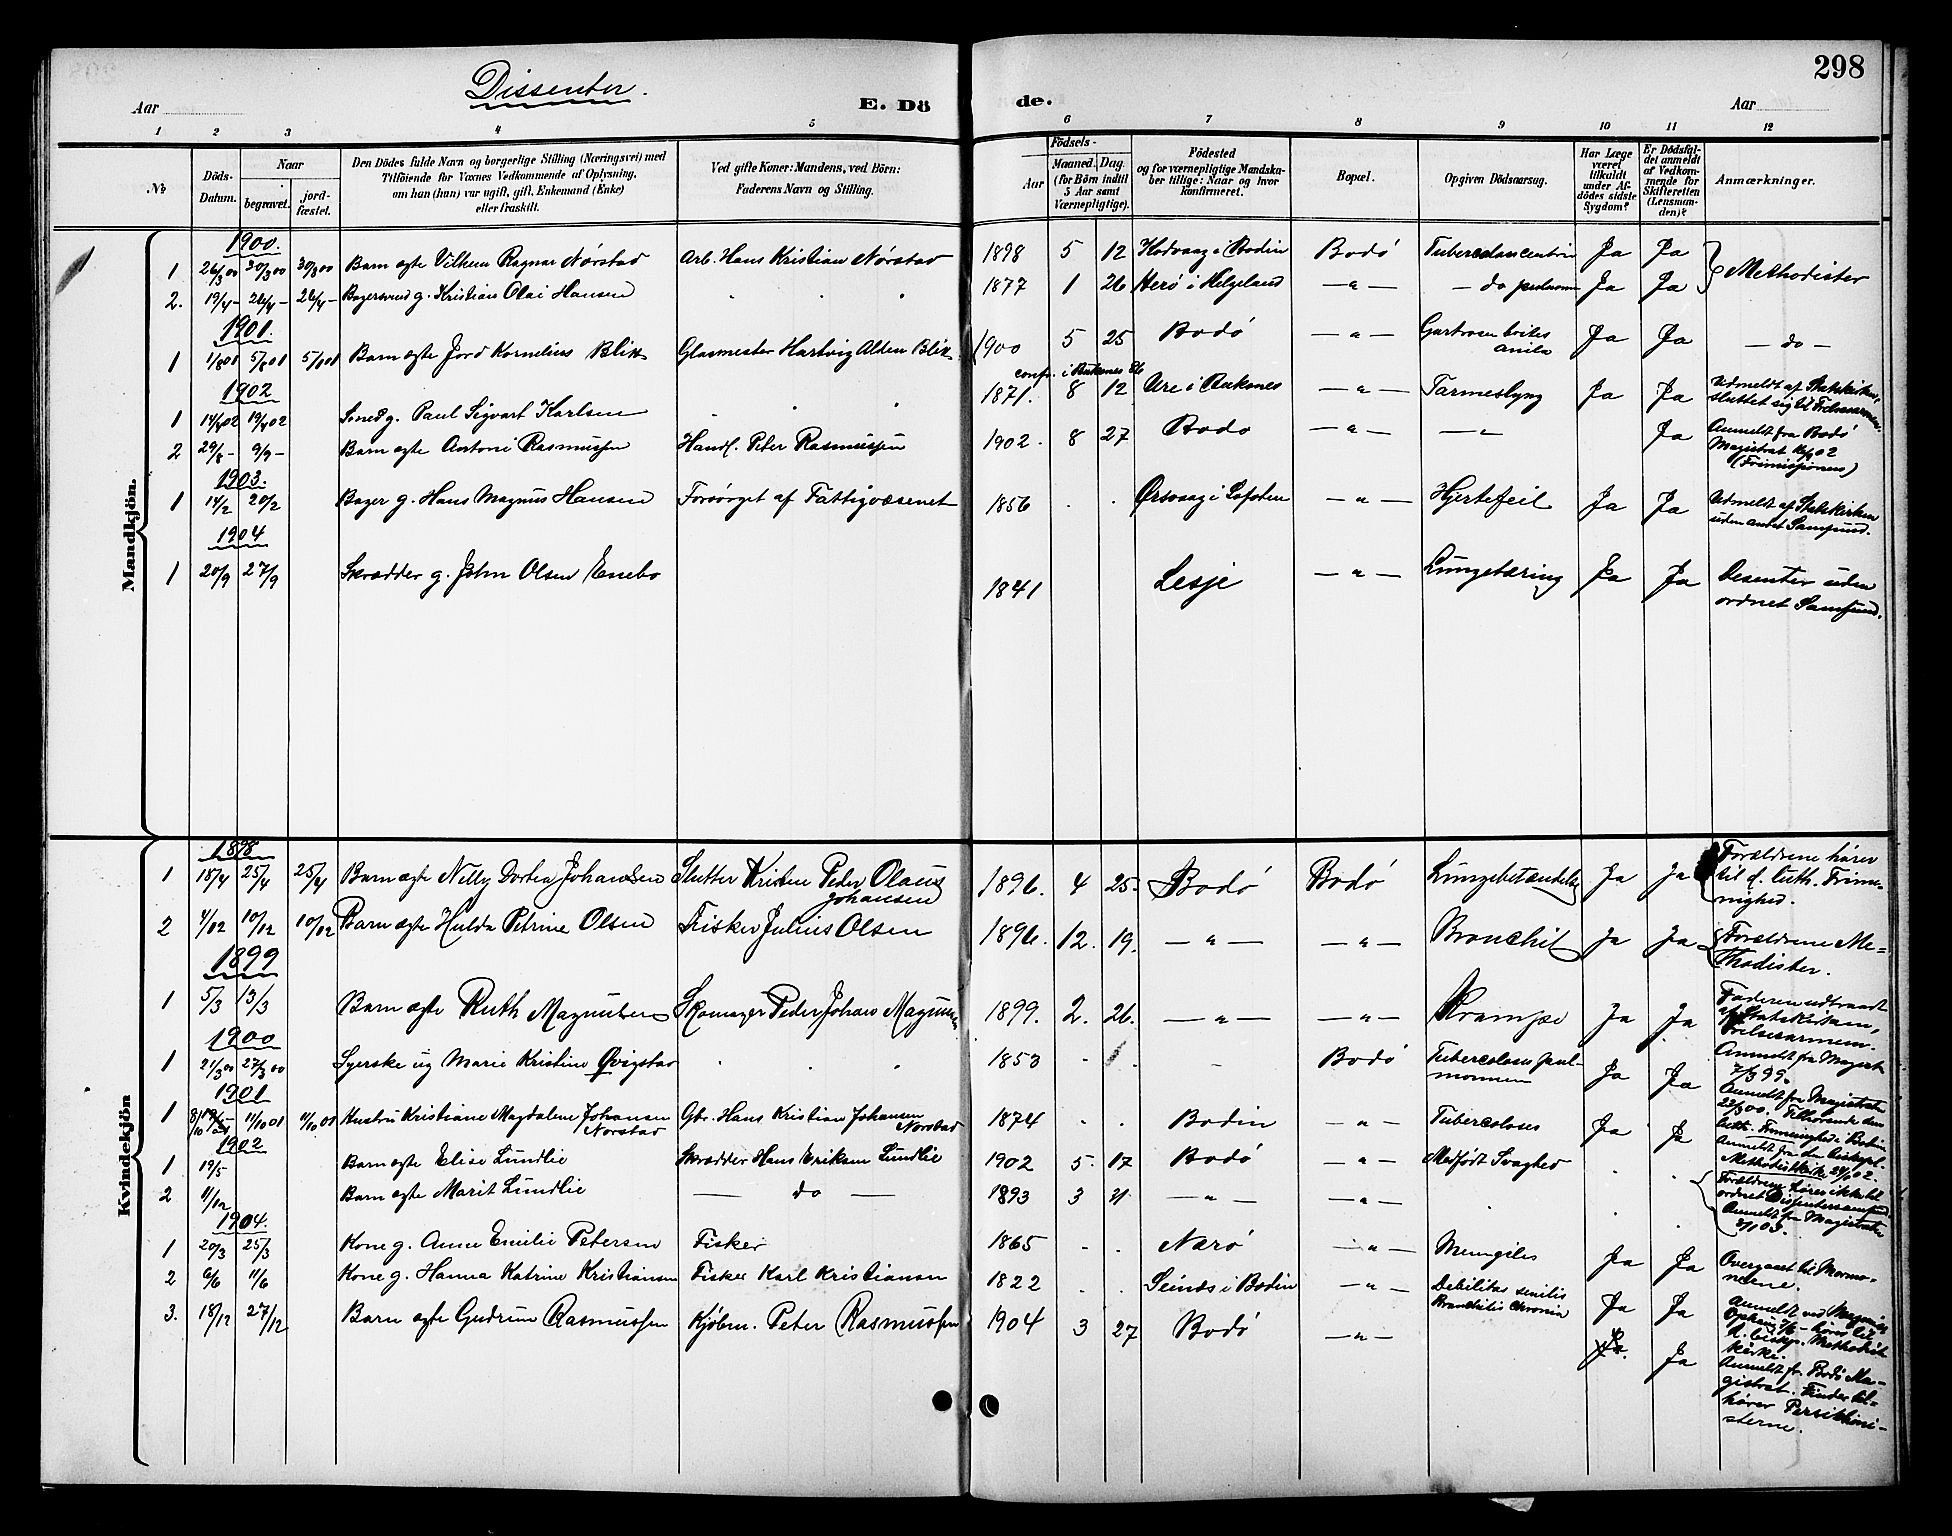 298
Dissenter.
Aar
E. Dö
de.
Aar
1 2 3 4 5 6 7 8 9 10 11 12
No
Döds-Datum.
Naar
begravet.
jord-fæstet.
Den Dödes fulde Navn og borgerlige Stilling (Næringsvei) med
Tilföiende for Voxnes Vedkommende af Oplysning,
om han (hun) var ugift, gift, Enkemand (Enke)
eller fraskilt.
Ved gifte Koner: Mandens, ved Börn:
Faderens Navn og Stilling.
Födsels-
Aar
Maaned. Dag.
(for Börn indtil
5 Aar samt
Værnepligtige).
Födested
og for værnepligtige Mandska-
ber tillige: Naar og hvor
konfirmeret.
Bopæl.
Opgiven Dödsaarsag.
Har Læge
været
tilkaldt
under Af-
dödes sidste
Sygdom?
Er Dödsfal-
det anmeldt
af Vedkom-
mende for
Skifteretten
(Lensman-
den)?
Anmærkninger.
Mandkjön.
1900.
1 26/3 00 30/3 00 30/3 00 Barn ægte Vilhem Ragnar Nørstad Arb. Hans Kristian Nørstad 1898 5 12 i Bodin Bodö Ja Ja
Methodister
2. 19/4 - 26/4 - 26/4 - Bagersvend g. Kristian Olai Hansen 1877 1 26 Herö i Helgeland - " - - do Ja Ja
1901.
1 1/8 01 5/8 01 5/8 01 Barn ægte Jord Kornelius Blix Glasmester Hartvig Alden Blix 1900 5 25 Bodö - " - Ja Ja - do -
1902
conf. i Buksnes
1 14/4 02 19/4 02 g. Paul Sigvart Karlsen 1871. 8 12 Ure i Buksnes - " - Tarmeslyng Ja Ja Udmeldt af Statskirken,
sluttet sig til Frelsesarmeen.
2 29/8 - 9/9 - Barn ægte Antoni Rasmussen Handl. Peter Rasmussen 1902. 8 27 Bodo - " - - " - Ja Anmeldt fra Bodö
Magistrat 02
(Frimissjonens)
1903.
1 14/2 20/2 Bager g. Hans Magnus Hansen Forsörget af Fattigvæsenet 1856 . . Ørsvaag i Lofoten - " - Hjertefeil Ja Ja Udmeldt af Statskirken
uden andet Samfund.
1904
1 20/9 27/9 Skrædder g. John Olsen Enebo 1841 Lesje - " - Lungetæring Ja Ja Desenter uden
ordnet Samfund.
Kvindekjön
1898
1 18/4 25/4 25/4 Barn ægte Nelly Dortea Johansen Slutter Kristen Peder Olaus
Johansen 1896. 4 25. Bodö Bodö Lungebetændelse Ja Ja Forældrene hører
til d. luth. Frime-
nighed.
2 4/12 10/12 10/12 Barn ægte Hulda Petrine Olsen Fisker Julius Olsen 1896. 12. 19. - " - - " - Bronchit Ja Ja Forældrene Me-
thodister.
1899
1 5/3 13/3 Barn ægte Ruth Magnusen Skomager Peder Johans Magnusen 1899. 2. 26. - " - - " - Krampe Ja Ja Faderen udtraadt
af Statskirken,
Frelsesarmeen.
1900
1 21/3 00 27/3 00 Syerske ug Marie Kristine Qvigstad 1853 Bodö Ja Ja Anmeldt fra Magistr.
7/3 99.
1901
1 11/10 01 11/10 01 Hustru Kristiane Magdalene Johansen
Norstad Gbr. Hans Kristian Johansen
Norstad 1874 . . Bodin - " - Tubercoloses Ja Ja Anmeldt fra Magistraten
22/3 00. Tilhörende den
luth. Frimenighed i Bodin
1902
1 19/5 Barn ægte Elise Lundlie Skrædder Hans Eriksen Lundlie 1902 5. 17 Bodö - " - Medfödt Svaghed Anmeldt fra den biskopl.
Methodistkirke 02.
2 11/12 Barn ægte Marit Lundlie - do - 1893 3 21. - " - - " - Forældrene høres ikke til
ordnet Dissentersamfund
Anmeldt fra Magistraten
03.
1904.
1 20/3 25/3 Kone g. Anne Emilie Petersen Fisker 1865 . . Narö - " - Ja Ja Overgaaet til Mormo-
nerne.
2 6/6 11/6 Kone g. Hanna Katrine Kristiansen Fisker Karl Kristiansen 1822 . . i Bodin - " - Debilitas senilis
Bronchitis Ja Ja Anmeldt ved
hører til
d. biskop. Methodist
kirke.
3. 18/12 27/12 Barn ægte Gudrun Rasmussen Kjøbm. Peter Rasmussen 1904 3 27 Bodö - " - Ja Anmeldt fr. Bodö Ma-
gistrat.
hører
sterne.